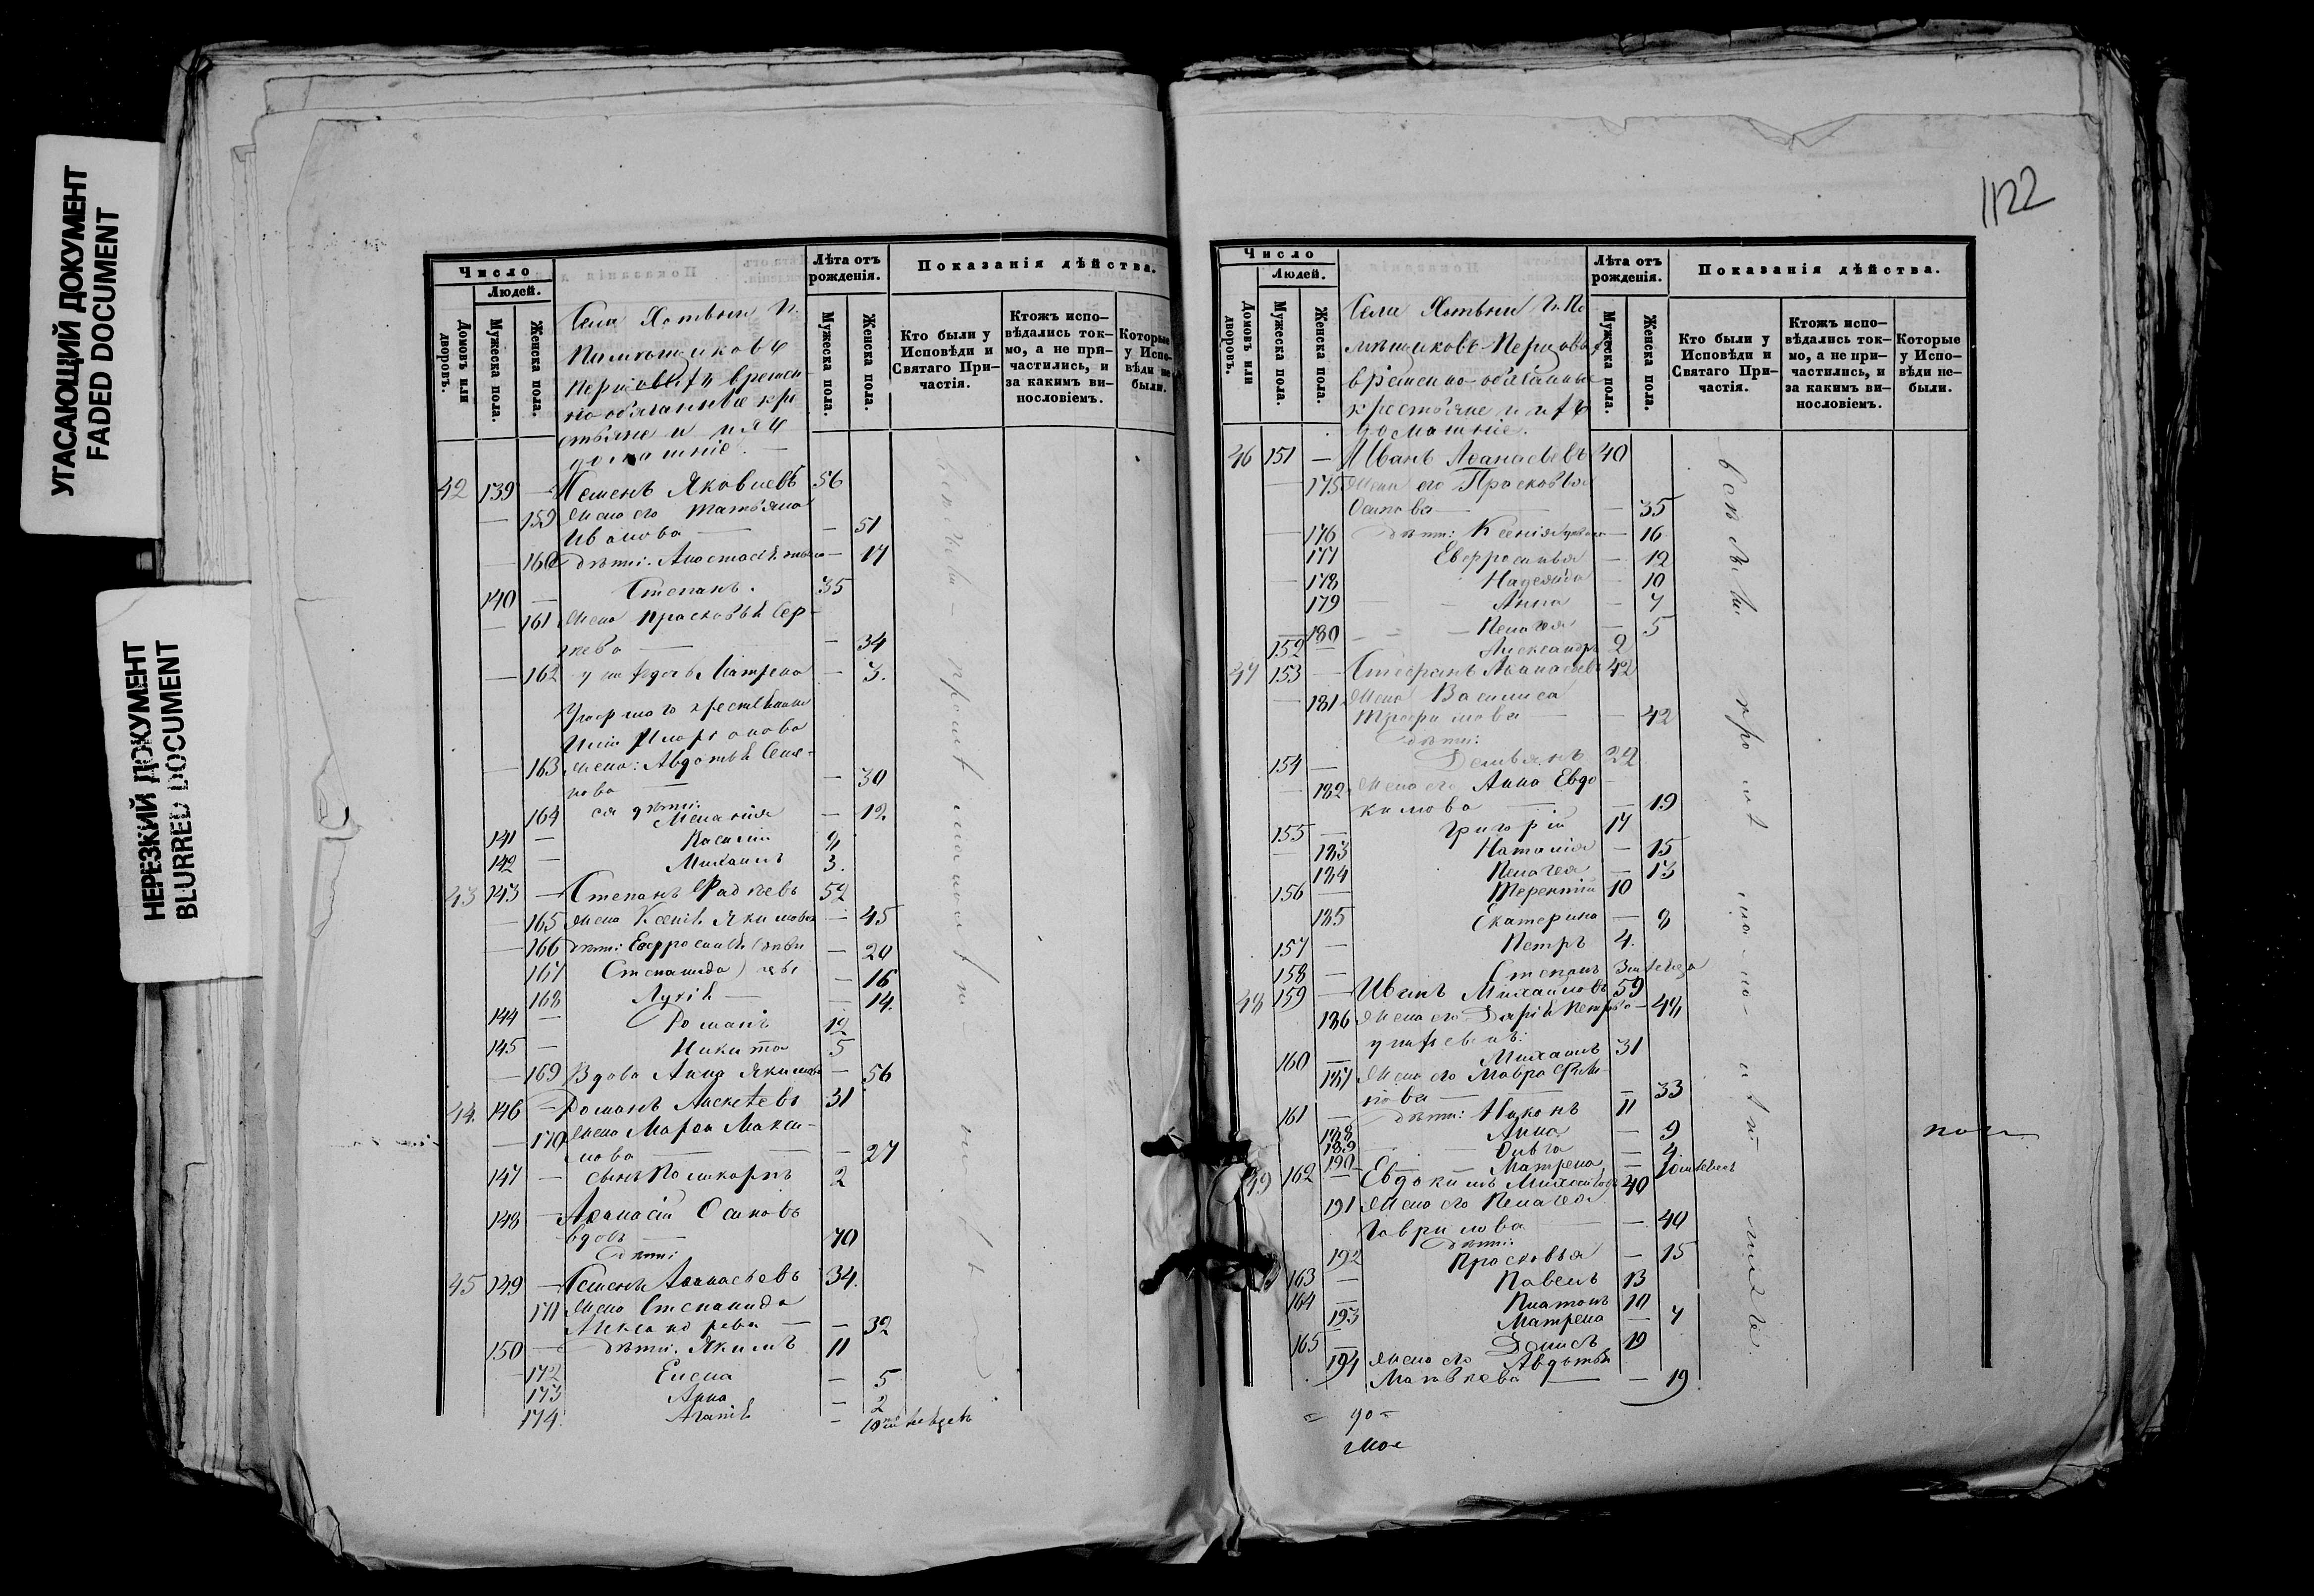 УГАСАЮЩИЙ ДОКУМЕНТ
FADED DOCUMENT
НЕРЕЗКИЙ ДОКУМЕНТ
BLURRED DOCUMENT
Число
Людей.
Домовъ или дворовъ.
Мужеска пола.
Женска пола.
Села Хотьни Г.
Помѣщиковъ
Перцовыхъ времен
но обязанные кре
стьяне и ихъ
домашніе.
Лѣта отъ рожденія.
Мужеска пола.
Женска пола.
Показанія дѣйства.
Кто были у Исповѣди и Святаго При-частія.
Ктожъ испо-вѣдались ток-мо, а не при-частились, и за какимъ ви-нословіемъ.
Которые у Испо-вѣди не были.
42 139 — Семенъ Яковлевъ 56
— 159 Жена его Татьяна
Иванова — — 51
— 160 дѣти: Анастасія — 17
140 — Степанъ. 35
— 161 Жена Прасковья Сер-
гѣева — — 34
— 162 Матрена — 3.
— 163 жена: Авдотья Семе-
нова — — 30
164 ея дѣти: Меланія — 12.
141 — Василій 9
142 — Михаилъ 3.
43 143 — Степанъ Фадѣевъ 52
— 165 Жена Ксенія Якимова — 45
— 166 дѣти: Евфросинія — 20
167 Степанида — 16
168 Лукія — — 14.
144 — Романъ 12
145 — Никита 5
— 169 Вдова Анна Якимова — 56
44. 146 — Романъ Алексѣевъ 31
— 170 Жена Марѳа Макси-
мова — — 27
147 — сынъ Поликарпъ 2
148 — Аѳанасій Осиповъ
вдовъ — 70
дѣти:
45 149 — Семенъ Аѳанасьевъ 34.
171 Жена Степанида
Александрова — — 32
150 — дѣти: Якимъ 11
172 Елена — 5
173 Анна — 2
174. Агапія — 10 недѣль
1122
Число
Людей.
Домовъ или дворовъ.
Мужеска пола.
Женска пола.
Села Хотьни Г. По
мѣщиковъ Перцовыхъ
временно-обязанные
крестьяне и ихъ
домашніе.
Лѣта отъ рожденія.
Мужеска пола.
Женска пола.
Показанія дѣйства.
Кто были у Исповѣди и Святаго При-частія.
Ктожъ испо-вѣдались ток-мо, а не при-частились, и за какимъ ви-нословіемъ.
Которые у Испо-вѣди не-были.
46 151 — Иванъ Аѳанасьевъ 40
— 175 Жена его Прасковья
Осипова — — 35
— 176 дѣти: Ксенія — 16
177 Евфросинья — 12
— 178 Надежда — 10
179 Анна — 7
— 180 — Пелагея — 5
152 — Александръ 2
47 153 — Стефанъ Аѳанасьевъ 42
— 181 Жена Василиса
Трофимова — — 42
дѣти:
154 — Демьянъ 22
— 182 Жена его Анна Евдо-
кимова — — 19
155 — Григорій 17
— 183 Наталія — 15
184 Пелагея — 13
156 — Терентій 10
185 Екатерина — 8
157 — Петръ 4.
158 — Степанъ
48 159 — Иванъ Михайловъ 59
186 Жена его Дарія Петрова — 44
160 — Михаилъ 31
187 Жена его Мавра
— 33
161 — дѣти: Никонъ 11
188 Анна — 9
189 — Ольга — 4
190 — Матрена —
49 162 — Евдокимъ Михайловъ 40
191 Жена его Пелагея
Гаврилова — — 40
дѣти:
192 Прасковья — 15
163 — Павелъ 13
164 — Платонъ 10
193 Матрена — 7
165 — Денисъ 19
194 Жена его Авдотья
Матвѣева — — 19